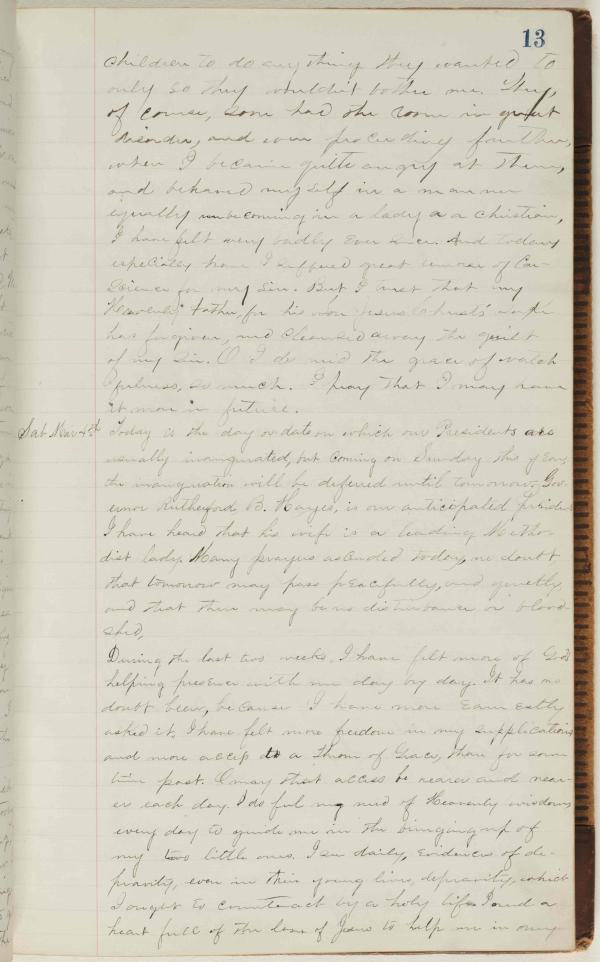 13
children to do anything they wanted to
only so they wouldn't bother me. They,
of course, soon had the room in great
disorder, and were proceeding further,
when I became quite angry at them,
and behaved myself in a manner
equally unbecoming in a lady or a christian,
I have felt very badly ever since. And today
especially have I suffered great remorse of Con-
science for my sin. But I trust that my
Heavenly Father, for his son Jesus Christs' sake
has forgiven, and cleansed away the guilt
of my sin. O I do need the grace of watch
fulness, so much. I pray that I may have
it more in future.
Sat. Mar 4th Today is the day or date on which our Presidents are
usually inaugurated, but coming on Sunday this year,
the inauguration will be deferred until tomorrow. Gov-
ernor Rutherford B. Hayes, is our anticipated President
I have heard that his wife is a leading Metho-
dist lady. Many prayers ascended today, no doubt
that tomorrow may pass peacefully, and quietly,
and that there may be no disturbance or blood-
shed,
During the last two weeks, I have felt more of God's
helping presence with me day by day. It has no
doubt been, because I have more earnestly
asked it. I have felt more freedom in my supplications
and more access to a throne of Grace, than for some
time past. O may that access be nearer and near-
er each day. I do feel my need of Heavenly wisdom
every day to guide me in the bringing up of
my two little ones. I see daily, evidences of de-
pravity, even in their young lives, depravity, which
I ought to counteract by a holy life. I need a
heart full of the love of Jesus to help me in my